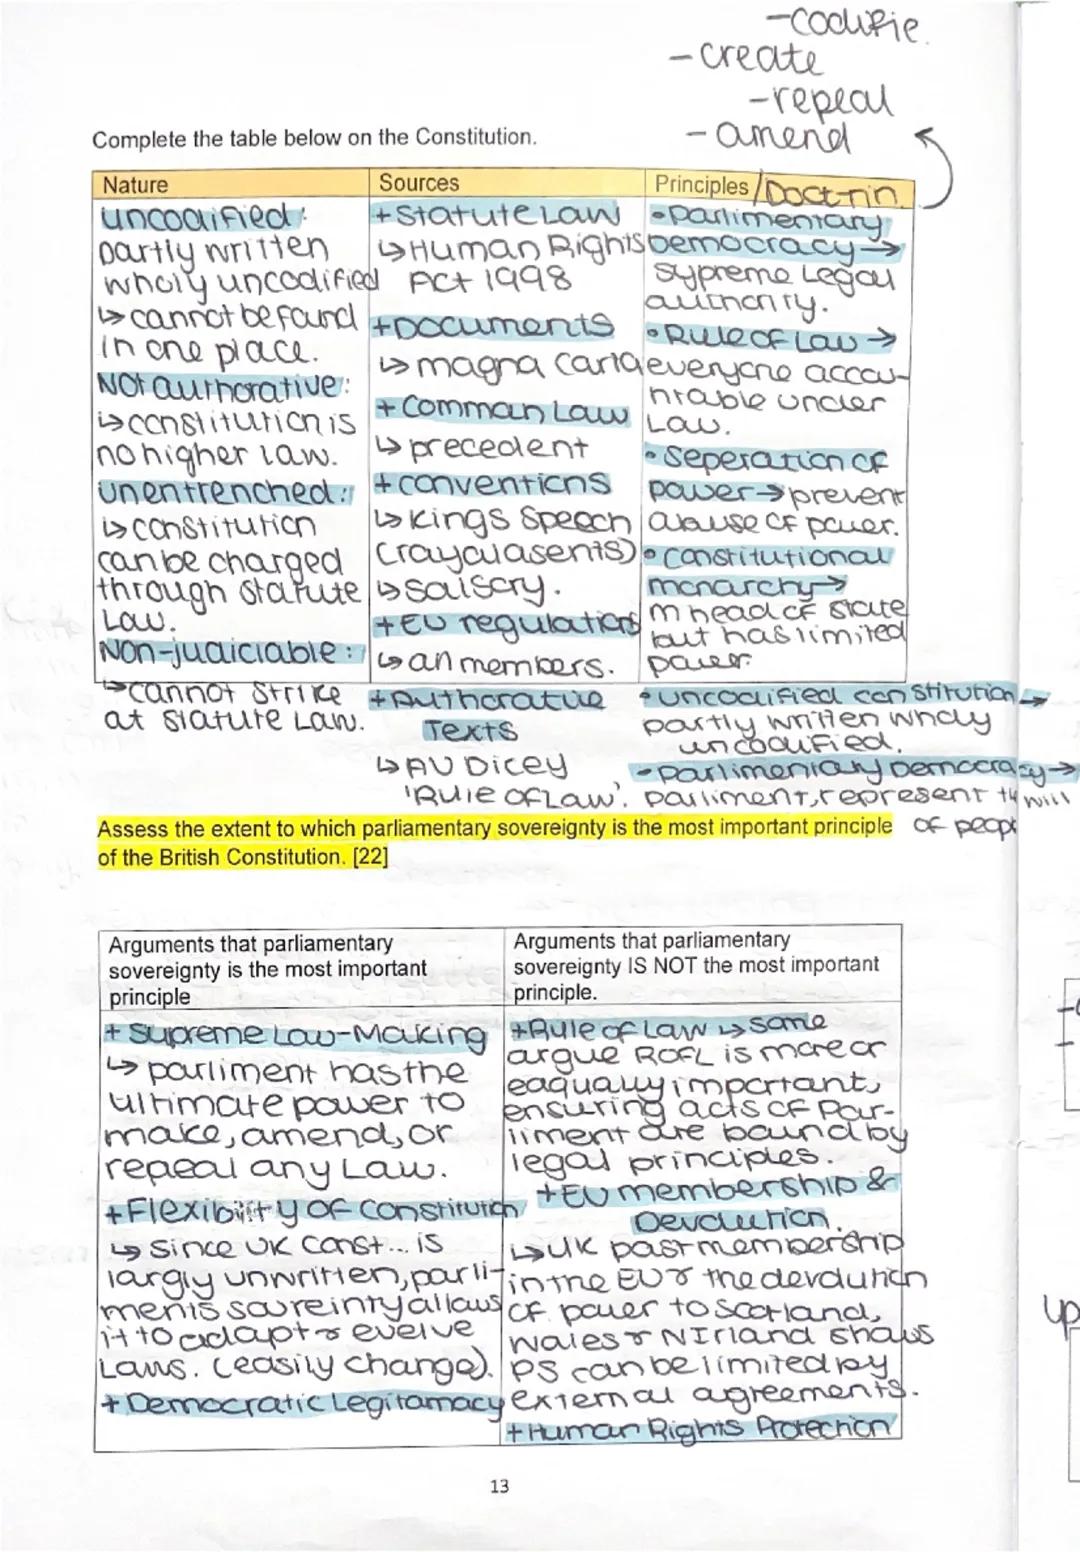 -codifie.
-create
-repeal
-amend
Complete the table below on the Constitution.
Nature
uncodified:
partly written
wholly uncodified
↳ cannot be found
in one place.
Not authorative:
↳ constitution is
no higher law.
unentrenched:
↳ constitution
can be changed
through statute
Law.
Non-judiciable:
↳ cannot strike
at statute Law.
Sources
+ Statute Law
↳ Human Rights
Act 1998
+ Documents
↳ magna carta
+ Common Law
↳ precedent
+ conventions
↳ Kings Speech
(royal asents)
↳ salsory.
+ EU regulations
↳ all members.
+ Authorative
Texts
↳ AV Dicey
'Rule of Law'.
Principles / Doct-rin.
• Parlimentary
Democracy →
supreme Legal
authority.
• Rule of Law →
everyone accou-
ntable under
Law.
• Seperation of
power → prevent
abuse of power.
• constitutional
monarchy →
m head of state
but has limited
power.
• uncodified constitution →
partly written wholy
uncodified.
- Parlimentary Democracy →
parliment, represent the will
of peopl
Assess the extent to which parliamentary sovereignty is the most important principle
of the British Constitution. [22]
Arguments that parliamentary
sovereignty is the most important
principle
+ Supreme Law-Making
↳ parliment has the
ultimate power to
make, amend, or
repeal any Law.
+ Flexibility of Constitution
↳ since UK Const... is
largly unwritten, parli-
ments soureinty allows
it to adapt & evelve
Laws. (easily change).
+ Democratic Legitamacy
Arguments that parliamentary
sovereignty IS NOT the most important
principle.
+ Rule of Law ↳ some
argue ROFL is more or
eaqually important,
ensuring acts of Par-
liment are bound by
legal principles.
+ EU membership &
Devolution.
↳ UK past membership
in the EU & the devolution
of power to Scotland,
Wales & NIrland shows
PS can be limited by
external agreements.
+ Human Rights Protection
13
up